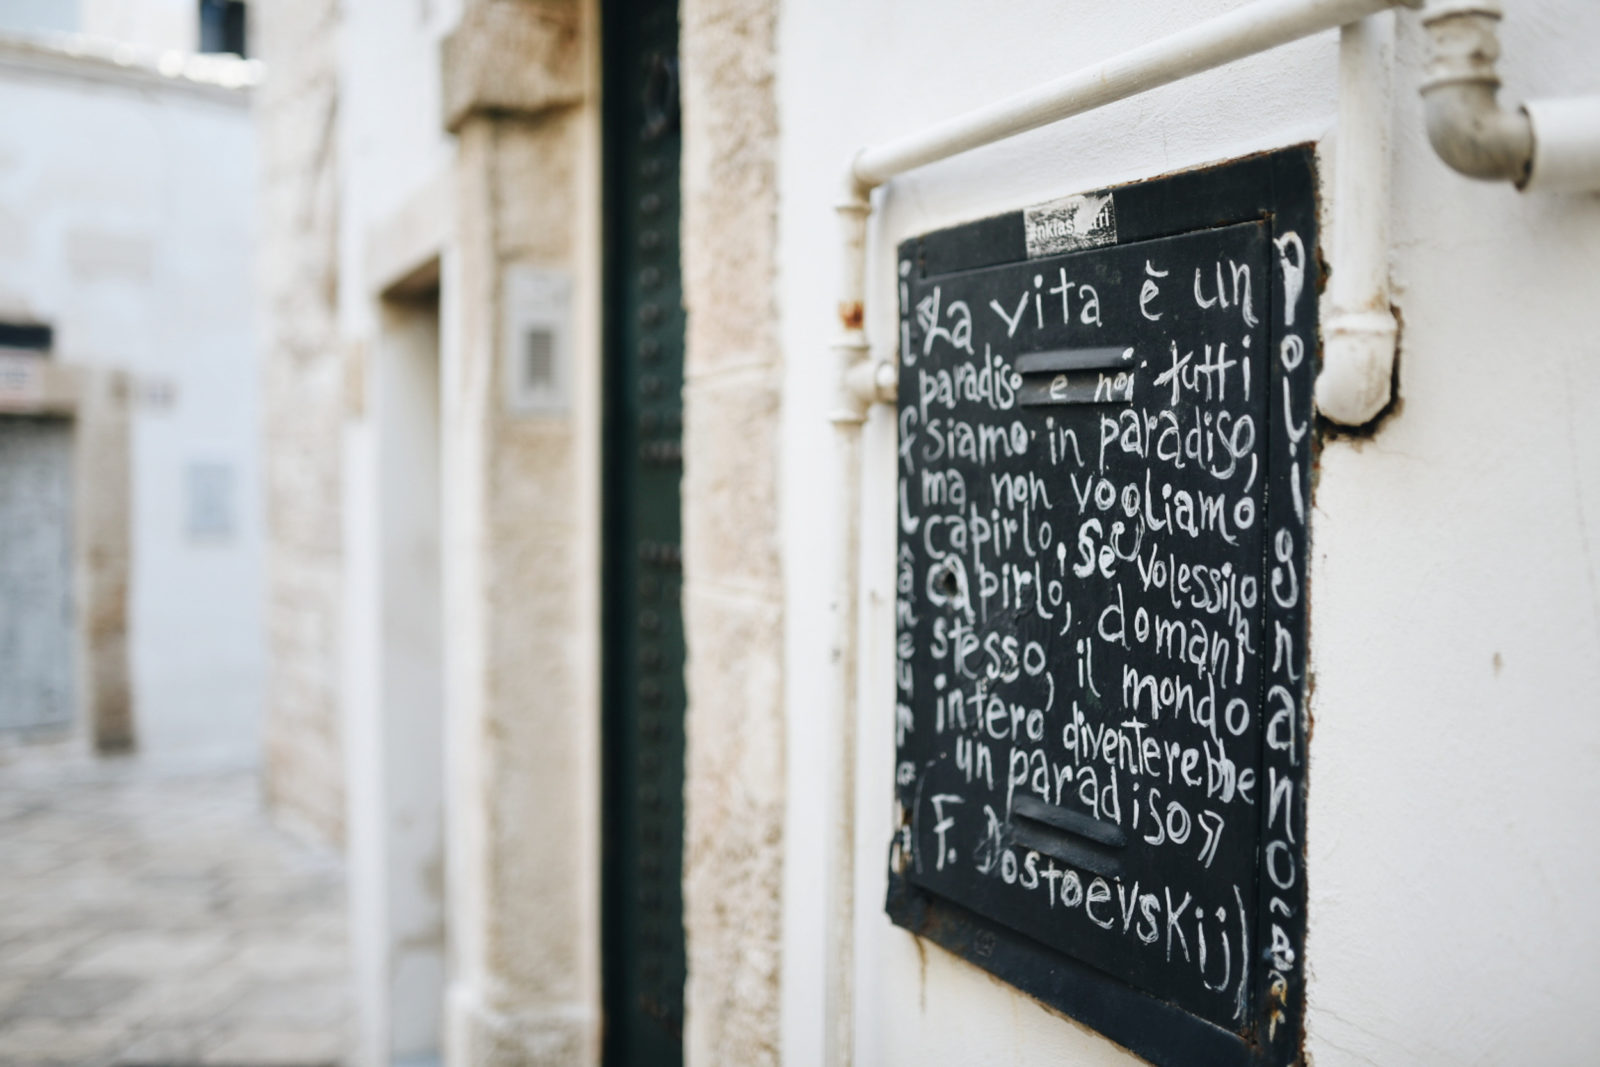 il flâneur
«La vita è un
paradiso e noi tutti
siamo in paradiso,
ma non vogliamo
capirlo. Se volessimo
capirlo, domani
stesso, il mondo
intero diventerebbe
un paradiso»
(F. Dostoevskij)
Polignano